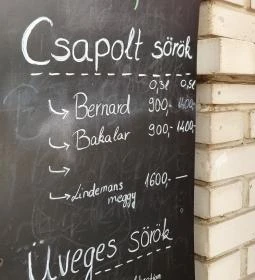 Csapolt sörök
0,3l 0,5l
Bernard 900,- 1400,-
Bakalar 900,- 1400,-
Lindemans meggy 1600,- —
Üveges sörök